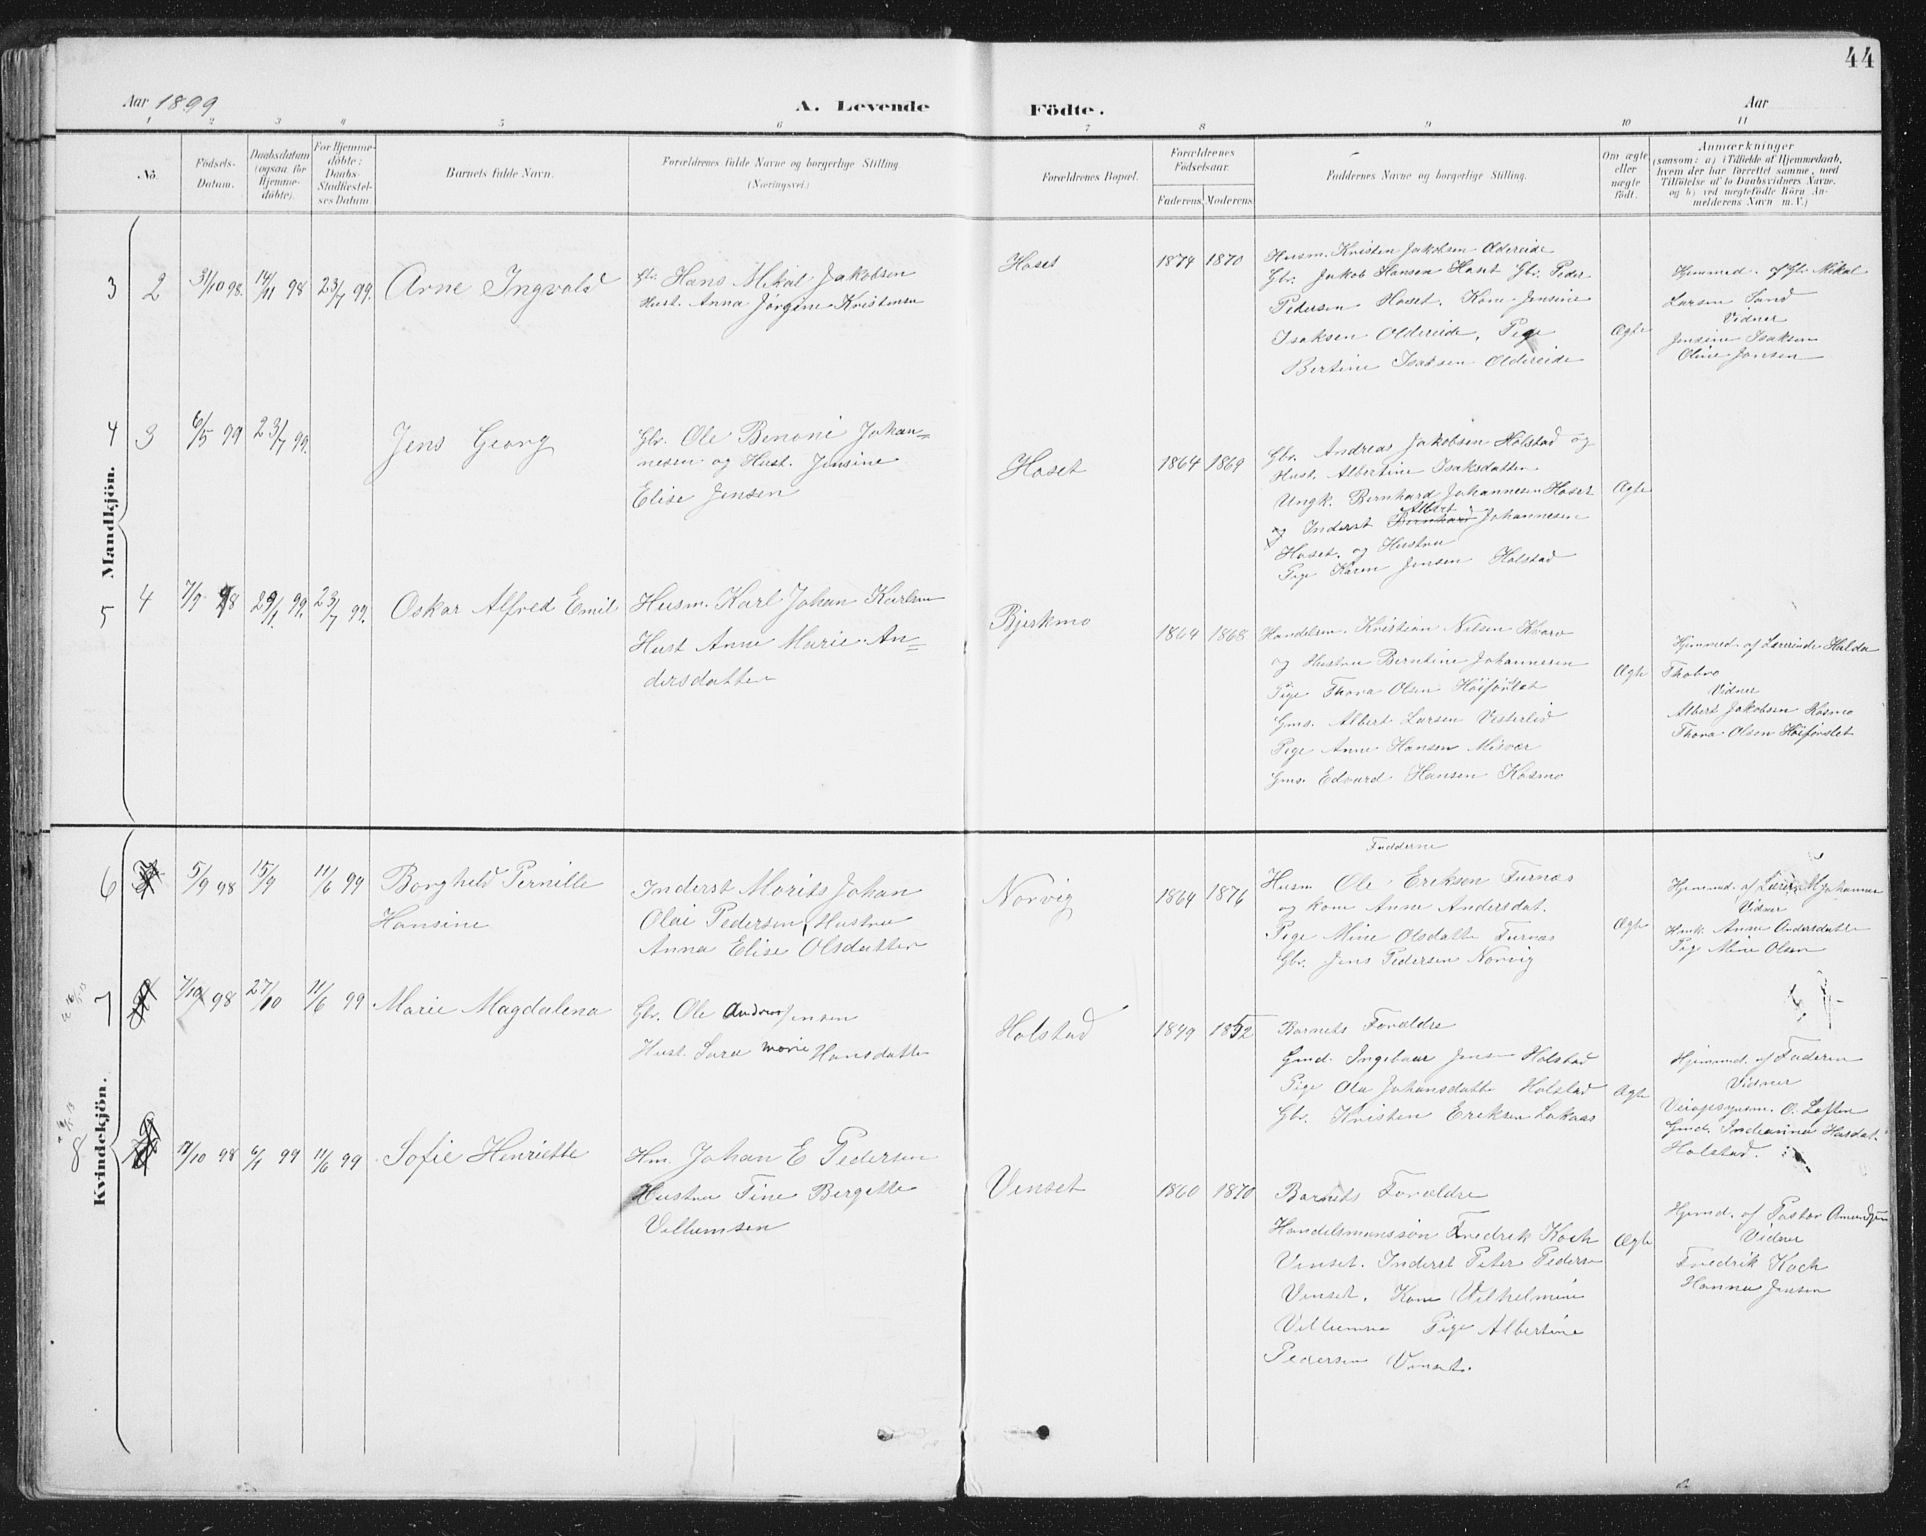 44
Aar 1899
A. Levende
Födte.
Aar
1 2 3 4 5 6 7 8 9 10 11
No.
Födsels-
Datum.
Daabsdatum
(ogsaa for
Hjemme-
döbte).
For Hjemme-
döbte:
Daabs-
Stadfæstel-
ses Datum.
Barnets fulde Navn.
Forældrenes fulde Navne og borgerlige Stilling.
(Næringsvei.)
Forældrenes Bopæl.
Forældrenes
Födselsaar.
Faderens
Moderens
Faddernes Navne og borgerlige Stilling.
Om ægte
eller
uægte
födt.
Anmærkninger
(saasom: a) i Tilfælde af Hjemmedaab,
hvem der har forrettet samme, med
Tilföielse af to Daabsvidners Navne,
og b) ved uegtefödte Börn An-
melderens Navn m. V.)
Mandkjön.
3 2 31/10 98. 14/11 98 23/7 99. Arne Ingvald
Gbr. Hans Mikal Jakobsen
Hust. Anna Jörgine Kristensen
Hoset
1874 1870
Husm. Kristen Jakobsen Oldereide
Gbr. Jakob Hansen Hoset Gbr. Peder
Pedersen Hoset. Kone Jensine
Isaksen Oldereide, Pige
Bertine Isaksen Oldereide
Ægte
Hjemmed. af Gbr. Mikal
Larsen Sand
Vidner
Jensine Isaksen
Oline Jansen
4 3 6/5 99 23/7 99. Jens Georg
Gbr. Ole Benoni Johan=
nesen og Hust. Jensine
Elise Jensen
Hoset
1864 1869
Gbr. Andreas Jakobsen Holstad og
Hust. Albertine Isaksdatter
Ungk. Bernhard Johannesen Hoset
Albert
og Inderst Bernhard Johannesen
Hoset. og Hustru
Pige Karen Jensen Holstad
Ægte
5 4 7/9 98 29/1 99. 23/7 99. Oskar Alfred Emil
Husm. Karl Johan Karlsen
Hust Anne Marie An=
dersdatter
Bjerkmo
1864 1868
Handelsm. Kristian Nilsen Kvarv
og Hustru Berntine Johannesen
Pige Thora Olsen Höiforslet
Gms. Albert Larsen Vesterlid
Pige Anne Hansen Misvær
Gms. Edvard Hansen Kosmo
Ægte
Hjemmed. af Lærerinde Hulda
Thobro
Vidner
Albert Jakobsen Kosmo
Thora Olsen Höiforslet
Kvindekjön.
6 5/9 98 15/9 11/6 99 Borghild Pernille
Hansine
Inderst Morits Johan
Olai Pedersen, Hustru
Anna Elise Olsdatter
Norvig
1864 1876
Fadderne
Husm Ole Eriksen Furnes
og kone Anne Andersdat.
Pige Mine Olsdatte Furnes
Gbr. Jens Pedersen Norvig
Ægte
Hjemmed. af Lærer Johannes
Vidner
Anne Andersdatte
Pige Mine Olsen
7 7/10 98 27/10 11/6 99 Marie Magdalena
Gbr. Ole Andreas Jensen
Hust. Sara Marie Hansdatte
Holstad
1849 1852
Barnets Forældre
Gmd. Ingebaar Jens Holstad
Pige Ola Johansdatte Holstad
Gbr. Kristen Eriksen Lakaas
Ægte
Hjemmed. af Faderen
Vidner
Veiopsynsm. O. Loften
Gmd. Indianna Hansdat.
Holstad.
8 11/10 98 6/1 99 11/6 99 Sofie Henriette
Hm. Johan E Pedersen
Hustru Tine Bergitte
Villumsen
Venset
1860 1870
Barnets Forældre
Handelsmanssön Fredrik Koch
Venset. Inderst Peter Pederse
Venset. Kone Wilhelmine
Villumse Pige Albertine
Pedersen Venset.
Ægte
Hjemd. af Pastor Amundsen
Vidner
Fredrik Koch
Hanna Jensen